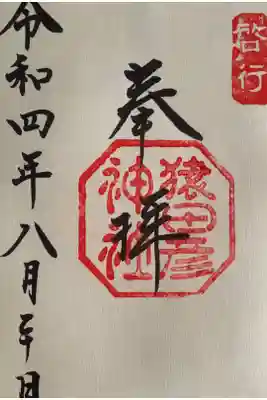 啓行
奉拝
猿田彦
神社
令和四年八月 日